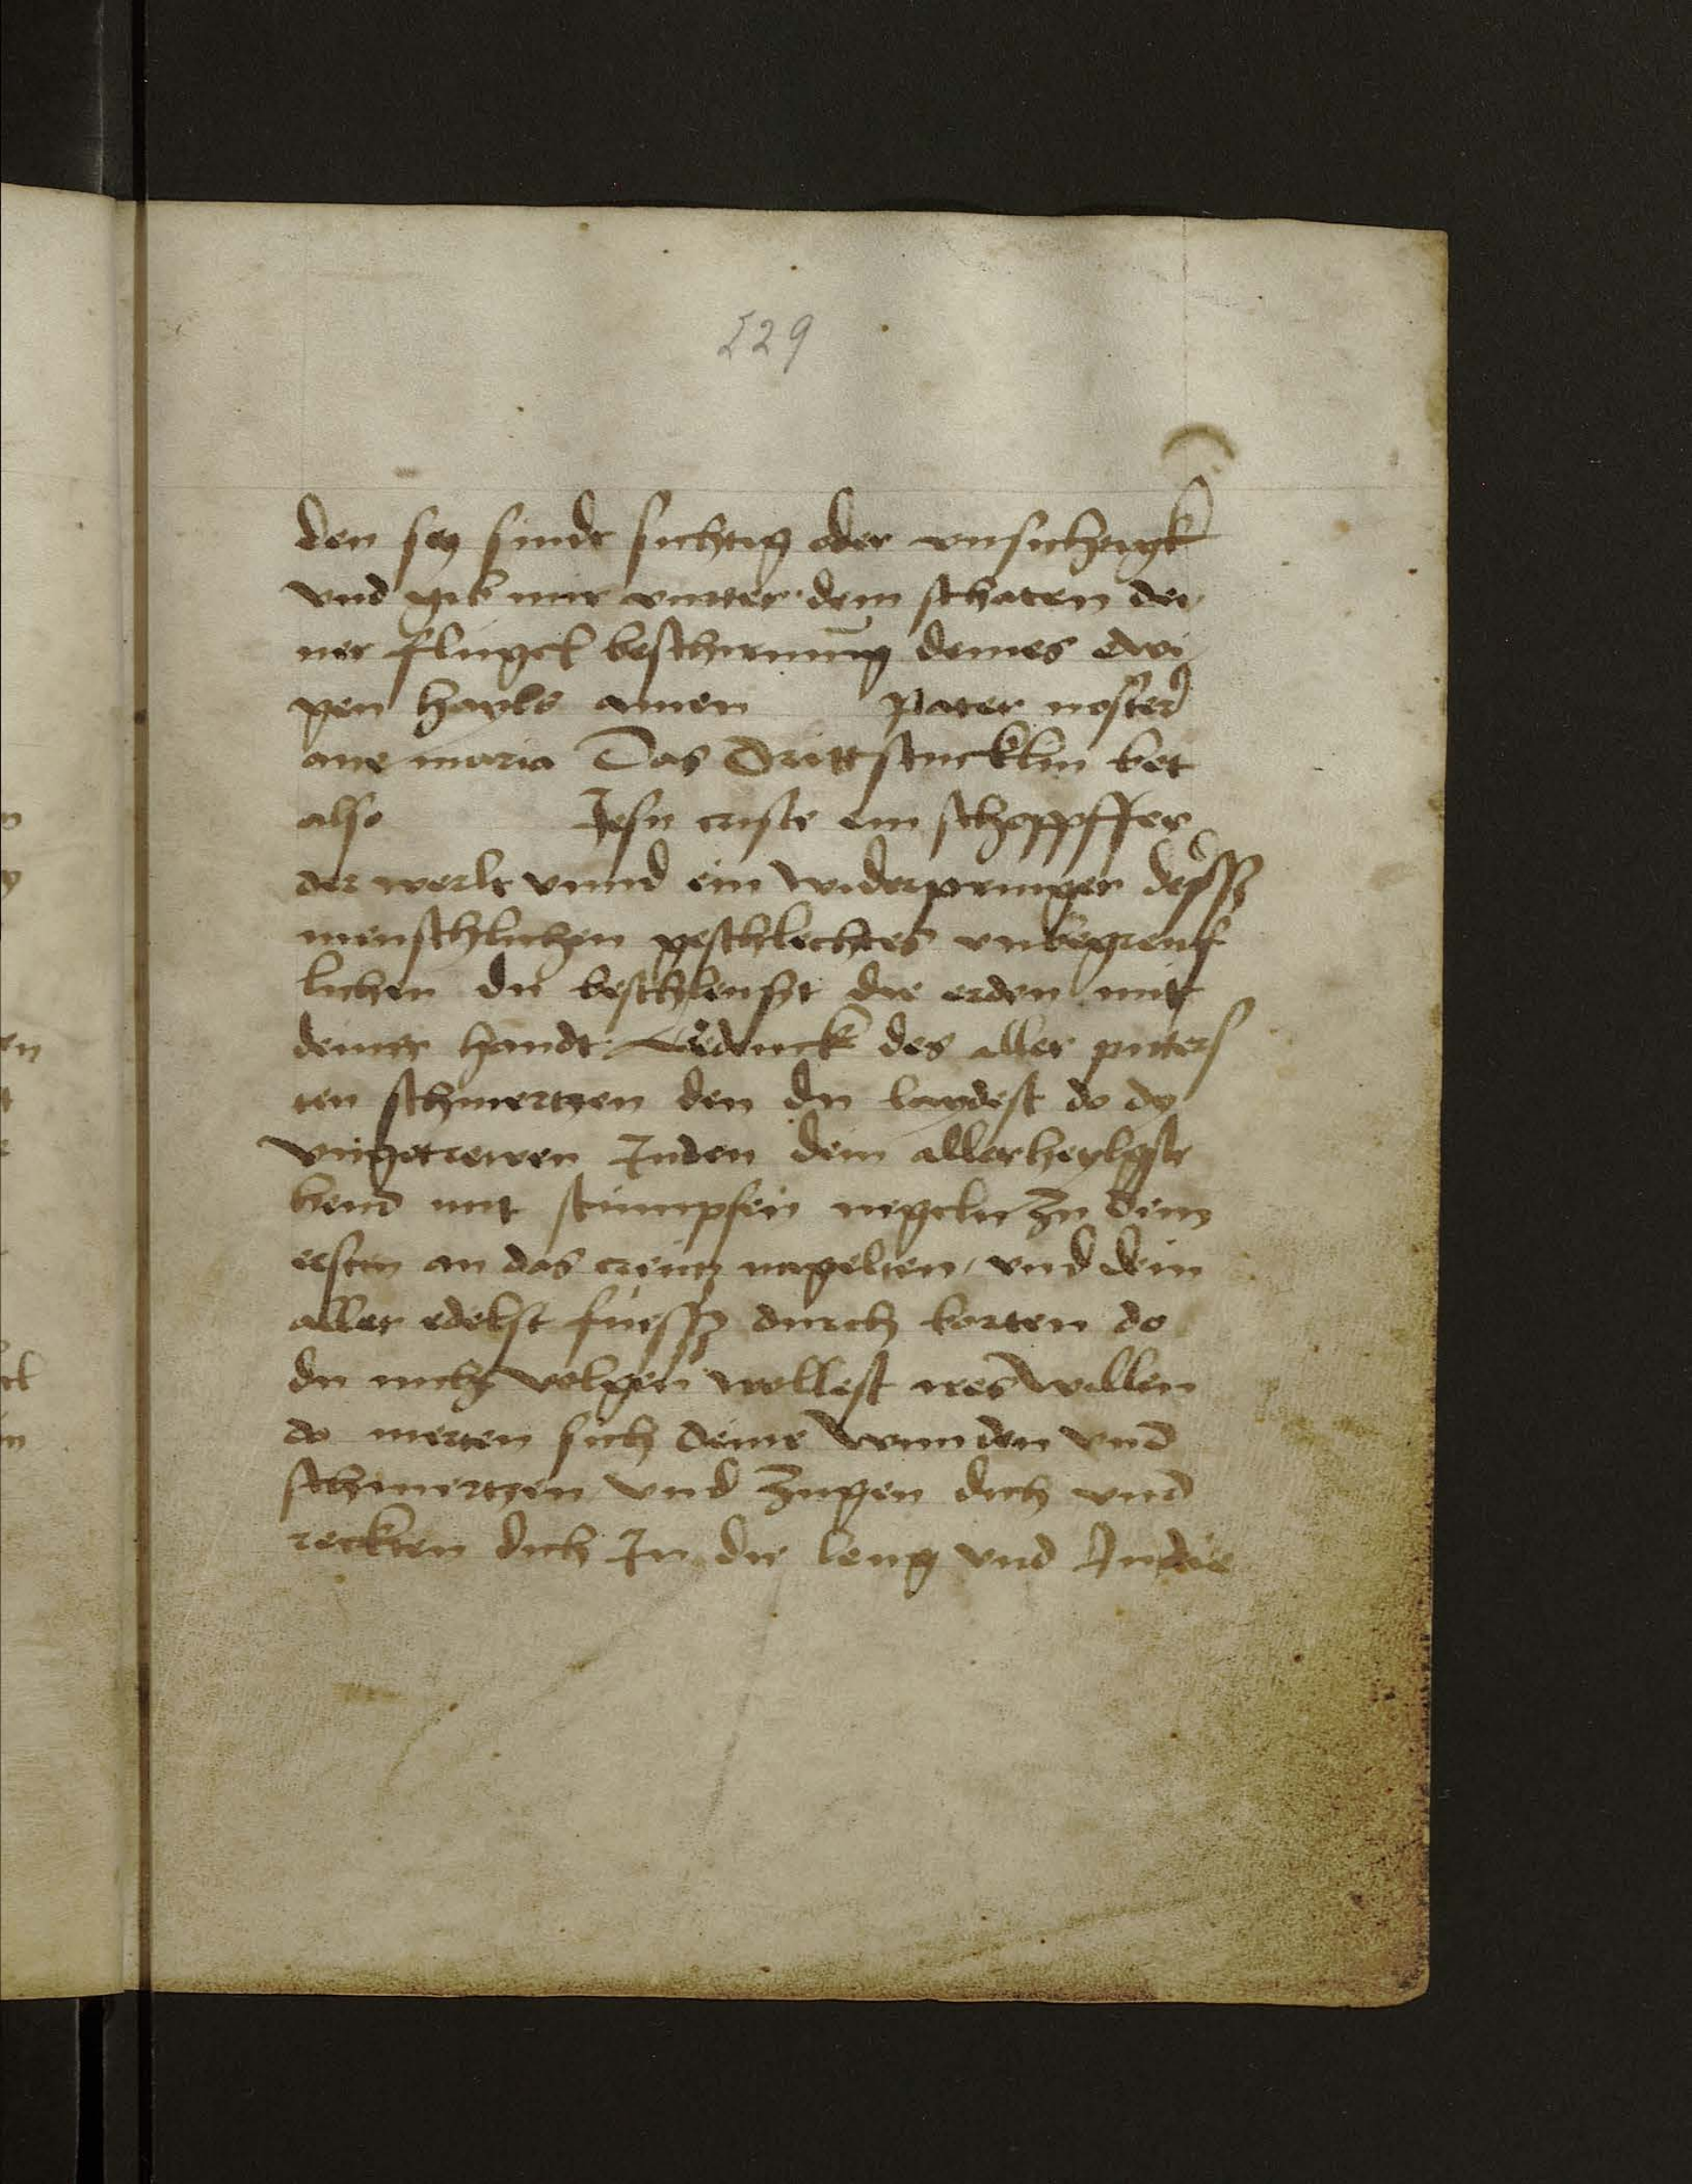 229
den sey sindt sichtig oder vnsichtigk
vnd gib mir vnnter dem schaten dei
ner flugel beschirmūg deines ewi
gen hayls amen pater noster
aue maria Das dritt stucklin bet
also Jesu criste ein schoppffer
der werlt vnnd ein widerpringer deſſz
menschlichen geschlechtes vnbegreuf
lichen du beschleust die erden mit
deiner handt Gedenck des aller pitters
ten schmertzen den du laydest do dy
vngetrewen Juden dein allerheylgste
hend mit stumpfen negeln zu dem
ersten an das creutz nagelten / vnd dein
aller edelst fuessz durch borten do
du nicht volgen wollest ires willen
do merten sich deine wunden vnd
schmertzen vnd zugen dich vnd
reckten dich Jn die leng vnd Jn die